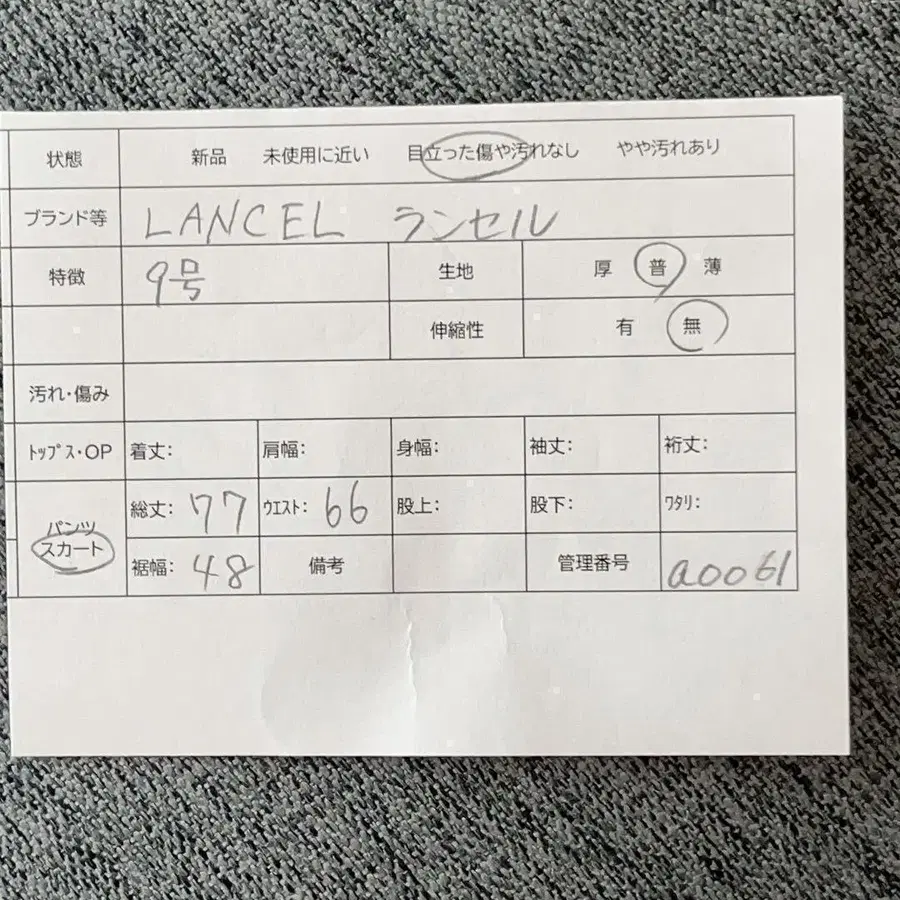 状態 新品 未使用に近い 目立った傷や汚れなし やや汚れあり
ブランド等 LANCEL ランセル
特徴 9号 生地 厚 普 薄
伸縮性 有 無
汚れ・傷み
ﾄｯﾌﾟｽ・OP 着丈: 肩幅: 身幅: 袖丈: 裄丈:
パンツ
スカート
総丈: 77 ｳｴｽﾄ: 66 股上: 股下: ﾜﾀﾘ:
裾幅: 48 備考 管理番号 a0061